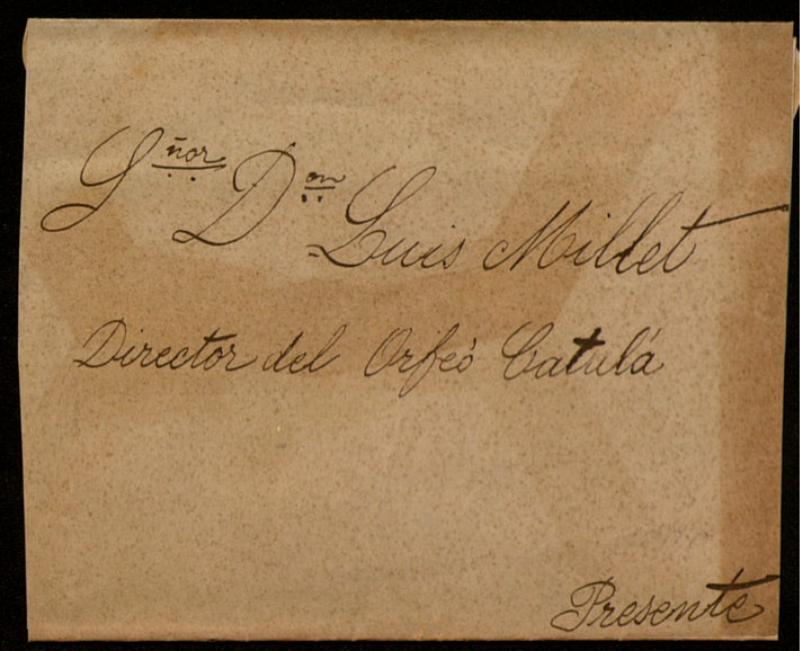 Sñor Don Luis Millet
Director del Orfeó Catulá
Presente